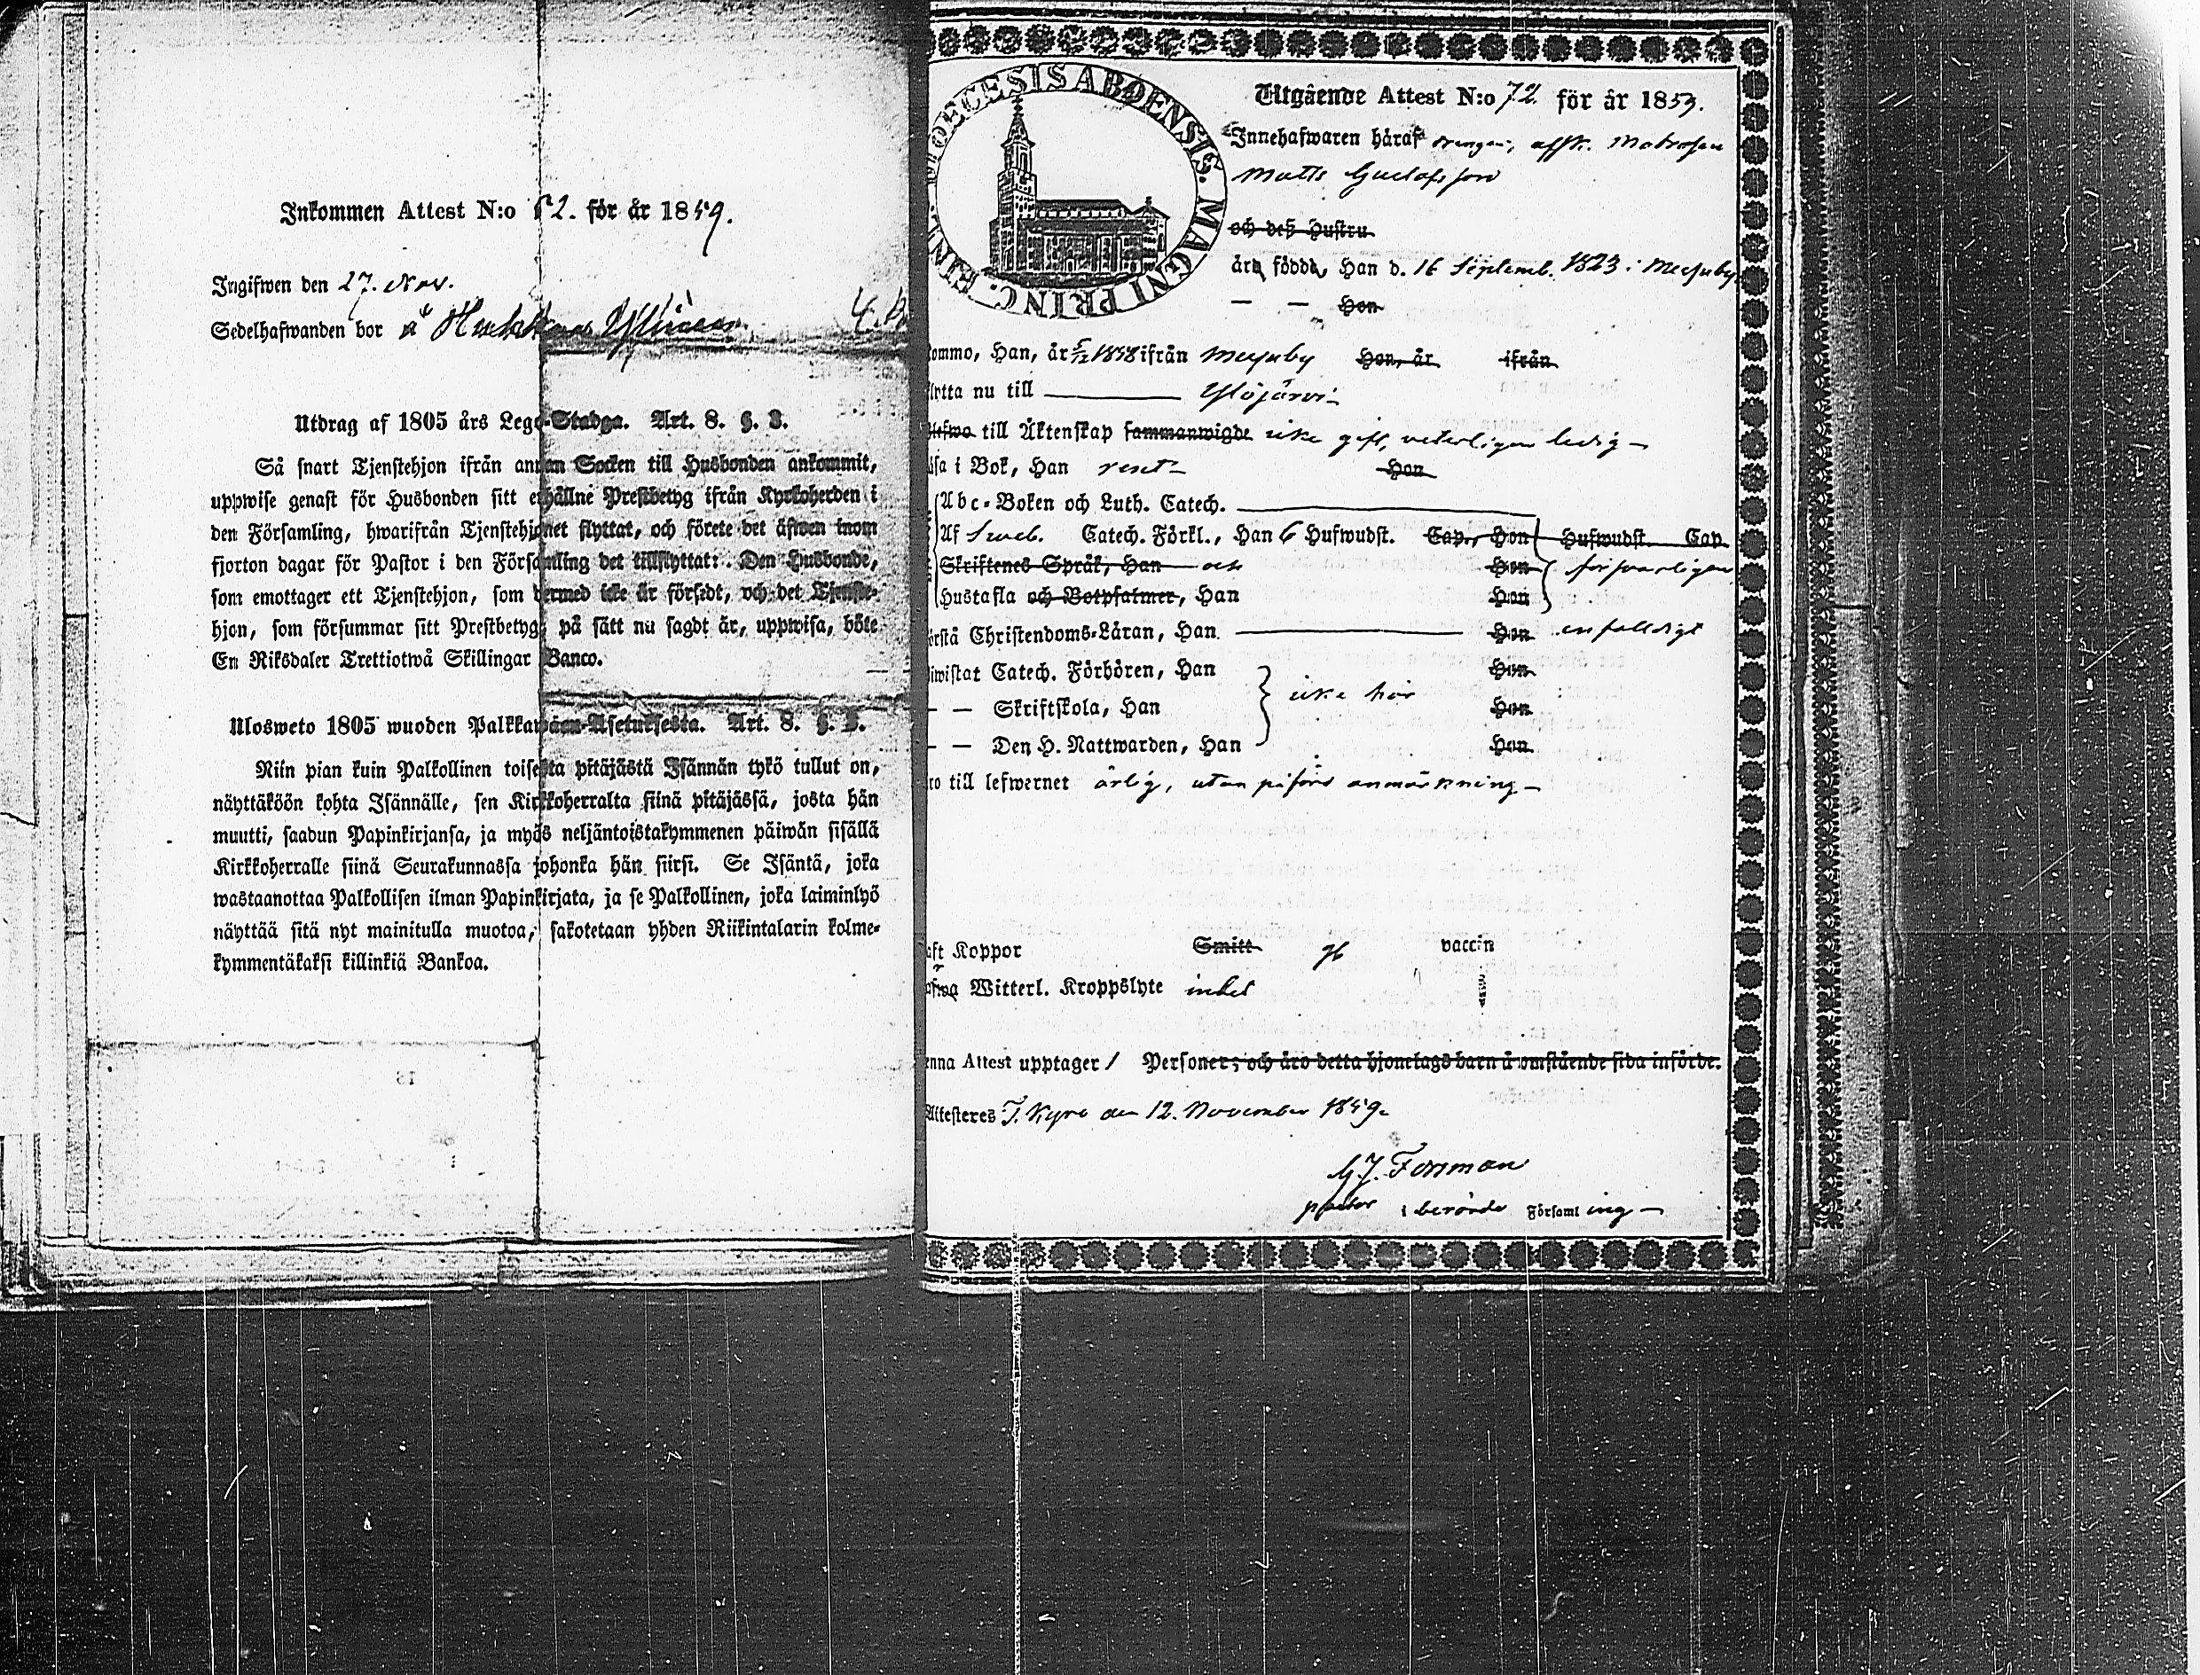 Inkommen Attest N:o 52. för år 1859.
Ingifwen den 27. Nov.
Sedelhafwanden bor å
Utdrag af 1805 års Lego-Stadga. Art. 8. §. 3.
Så snart Tjenstehjon ifrån annan Socken till Husbonden ankommit,
uppwise genast för Husbonden sitt erhållne Prestbetyg ifrån Kyrkoherden i
den Församling, hwarifrån Tjenstehjonet flyttat, och förete det äfwen inom
fjorton dagar för Pastor i den Församling det tillflyttat: Den Husbonde,
som emottager ett Tjenstehjon, som dermed icke är försedt, och det Tjenste-
hjon, som försummar sitt Prestbetyg, på sätt nu sagdt är, uppwisa, böte
En Riksdaler Trettiotwå Skillingar Banco.
Ulosweto 1805 wuoden Palkkawäen-Asetuksesta. Art. 8. §. 3.
Niin pian kuin Palkollinen toisesta pitäjästä Isännän tykö tullut on,
näyttäköön kohta Isännälle, sen Kirkkoherralta siinä pitäjässä, josta hän
muutti, saadun Papinkirjansa, ja myös neljäntoistakymmenen päiwän sisällä
Kirkkoherralle siinä Seurakunnassa johonka hän siirsi. Se Isäntä, joka
wastaanottaa Palkollisen ilman Papinkirjata, ja se Palkollinen, joka laiminlyö
näyttää sitä nyt mainitulla muotoa, sakotetaan yhden Riikintalarin kolme-
kymmentäkaksi killinkiä Bankoa.
DIOECESIS ABOENSIS. MAGNI PRINC. FINL.
Utgående Attest N:o 72. för år 1859.
Innehafwaren häraf drengen, affsk. Matrosen
Matts Gustafsson
och deß Hustru
äro födde, Han d. 16 Septemb. 1823 i
— — Hon
kommo, Han, år 1858 ifrån Hon, år ifrån
flytta nu till Ylöjärvi
till Äktenskap sammanwigde icke gift, veterligen ledig —
läsa i Bok, Han rent Hon
Abc-Boken och Luth. Catech.
Af Sweb. Catech. Förkl., Han 6 Hufwudst. Cap., Hon Hufwudst. Cap.
Skriftenes Språk, Han och Hon försvarligen
Hustafla och Botpsalmer, Han Hon
förstå Christendoms-Läran, Han Hon enfaldigt
biwistat Catech. Förhören, Han Hon
— — Skriftskola, Han icke här Hon
— — Den H. Nattwarden, Han Hon
äro till lefwernet ärlig, utan påförd anmärkning —
haft Koppor Smitt vaccin
hafwa Witterl. Kroppslyte intet
Denna Attest upptager 1 Personer; och äro detta hjonelags barn å omstående sida införde.
Attesteres T. Kyro den 12. November 1859.
G.J. Forsman
pastor i berörde Församling —